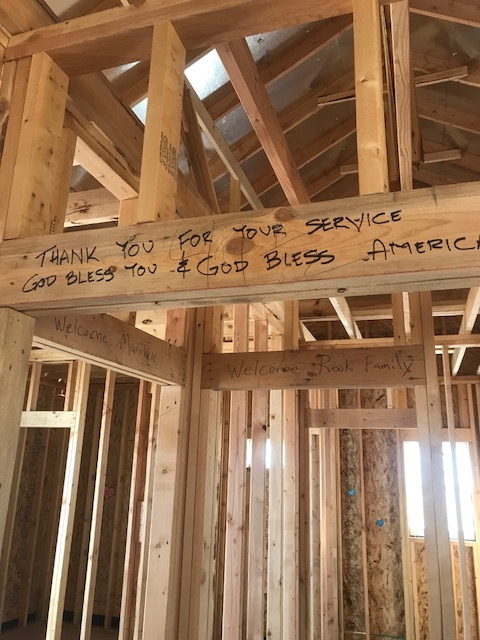 THANK YOU FOR YOUR SERVICE
GOD BLESS YOU & GOD BLESS AMERICA
Welcome Marilyn
Welcome Rook Family